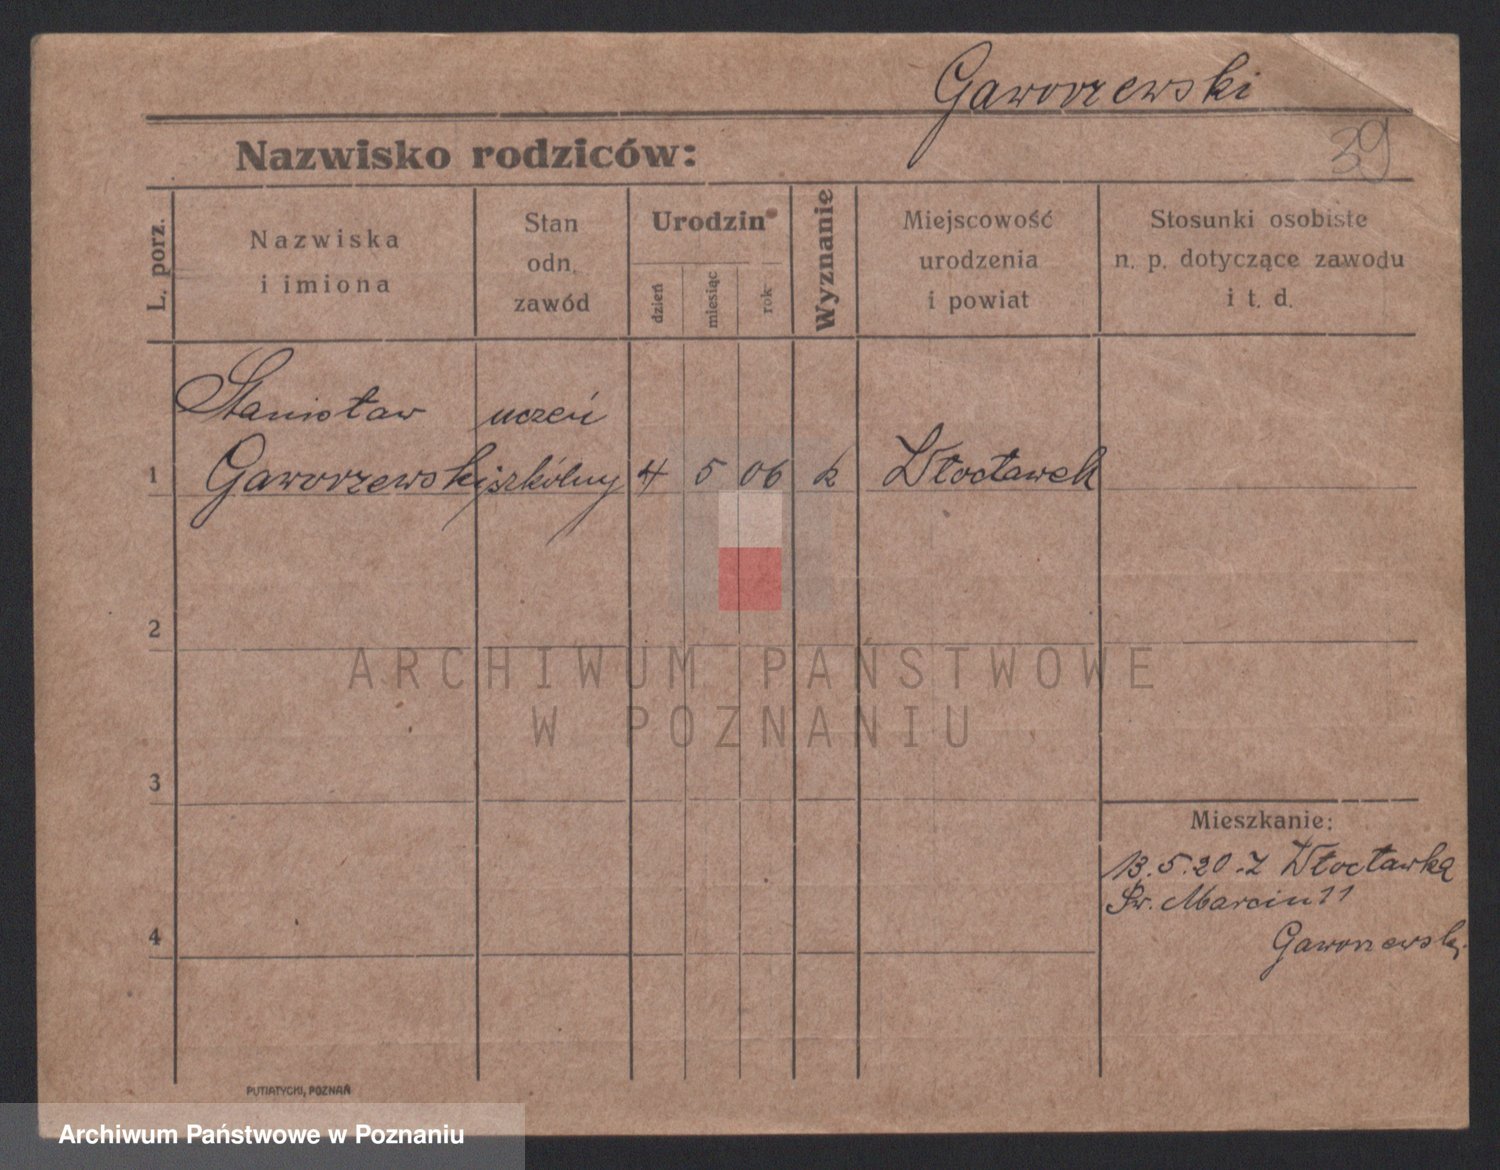 Gaworzewski
39
Nazwisko rodziców:
L. porz.
Nazwiska
i imiona
Stan
odn.
zawód
Urodzin
dzień
miesiąc
rok
Wyznanie
Miejscowość
urodzenia
i powiat
Stosunki osobiste
n. p. dotyczące zawodu
i t. d.
Stanisław uczeń
1 Gaworzewski szkólny 4 5 06 k Włocławek
2
ARCHIWUM PAŃSTWOWE
W POZNANIU
3
Mieszkanie:
13.5.20.z Włocławka
Św. Marcin 11
4
Gaworzewski
PUTIATYCKI, POZNAŃ
Archiwum Państwowe w Poznaniu